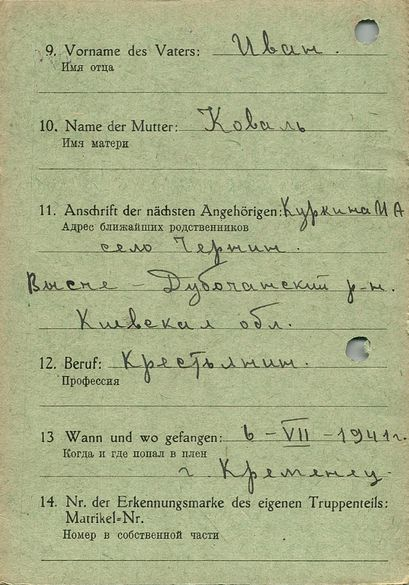 9. Vorname des Vaters: Иван.
Имя отца
10. Name der Mutter: Коваль
Имя матери
11. Anschrift der nächsten Angehörigen: Куркина И А
Адрес ближайших родственников
село Чернин.
Высче – Дубочанский р-н.
Киевская обл.
12. Beruf: Крестьянин.
Профессия
13 Wann und wo gefangen: 6 – VII – 1941 г.
Когда и где попал в плен
г Кременец
14. Nr. der Erkennungsmarke des eigenen Truppenteils:
Matrikel-Nr.
Номер в собственной части